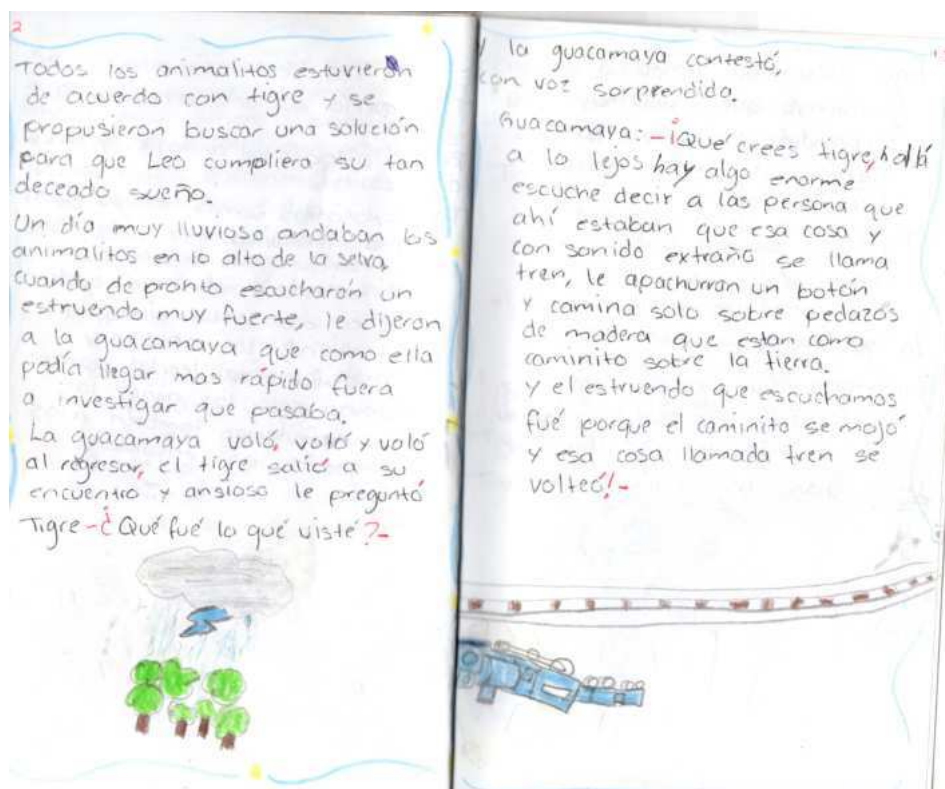 2
Todos los animalitos estuvierón
de acuerdo con tigre y se
propusieron buscar una solución
para que Leo cumpliera su tan
deceado sueño.
Un día muy lluvioso andaban los
animalitos en lo alto de la selva,
cuando de pronto escucharón un
estruendo muy fuerte, le dijeron
a la guacamaya que como ella
podía llegar mas rápido fuera
a investigar que pasaba.
La guacamaya voló, voló y voló
al regresar, el tigre salió a su
encuentro y ansioso le preguntó
Tigre -¿Qué fué lo qué viste?-
y la guacamaya contestó,
con voz sorprendida.
Guacamaya: -¡Qué crees tigre, hallá
a lo lejos hay algo enorme
escuche decir a las persona que
ahí estaban que esa cosa y
con sonido extraño se llama
tren, le apachurran un botón
y camina solo sobre pedazos
de madera que estan como
caminito sobre la tierra.
y el estruendo que escuchamos
fué porque el caminito se mojó
y esa cosa llamada tren se
volteó!-